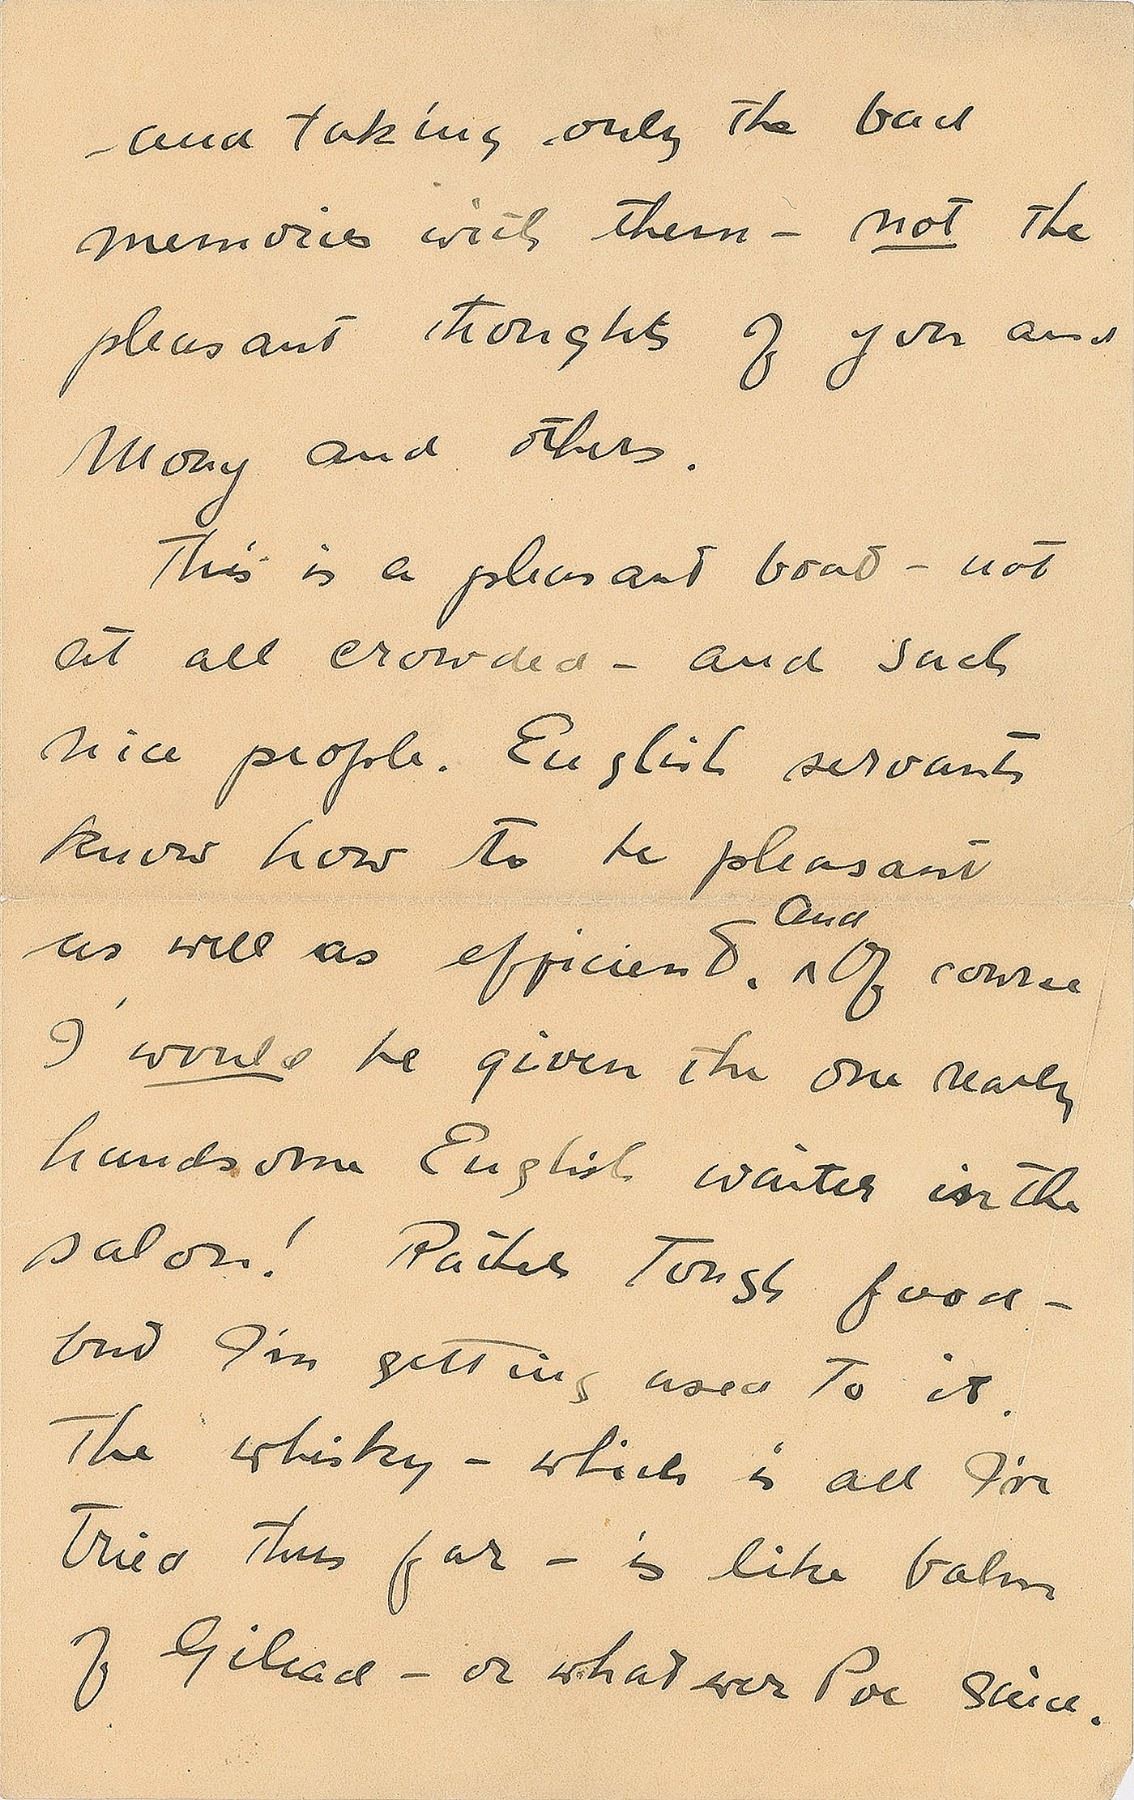 and taking only the bad
memories with them - not the
pleasant thoughts of you and
Mony and others.
This is a pleasant boat - not
at all crowded - and such
nice people. English servants
know how to be pleasant
as well as efficient. And Of course
I would be given the one really
handsome English waiter in the
salon! Rather Tough food -
but I'm getting used to it.
The whisky - which is all I've
tried thus far - is like balm
of Gilead - or what ever Poe said.